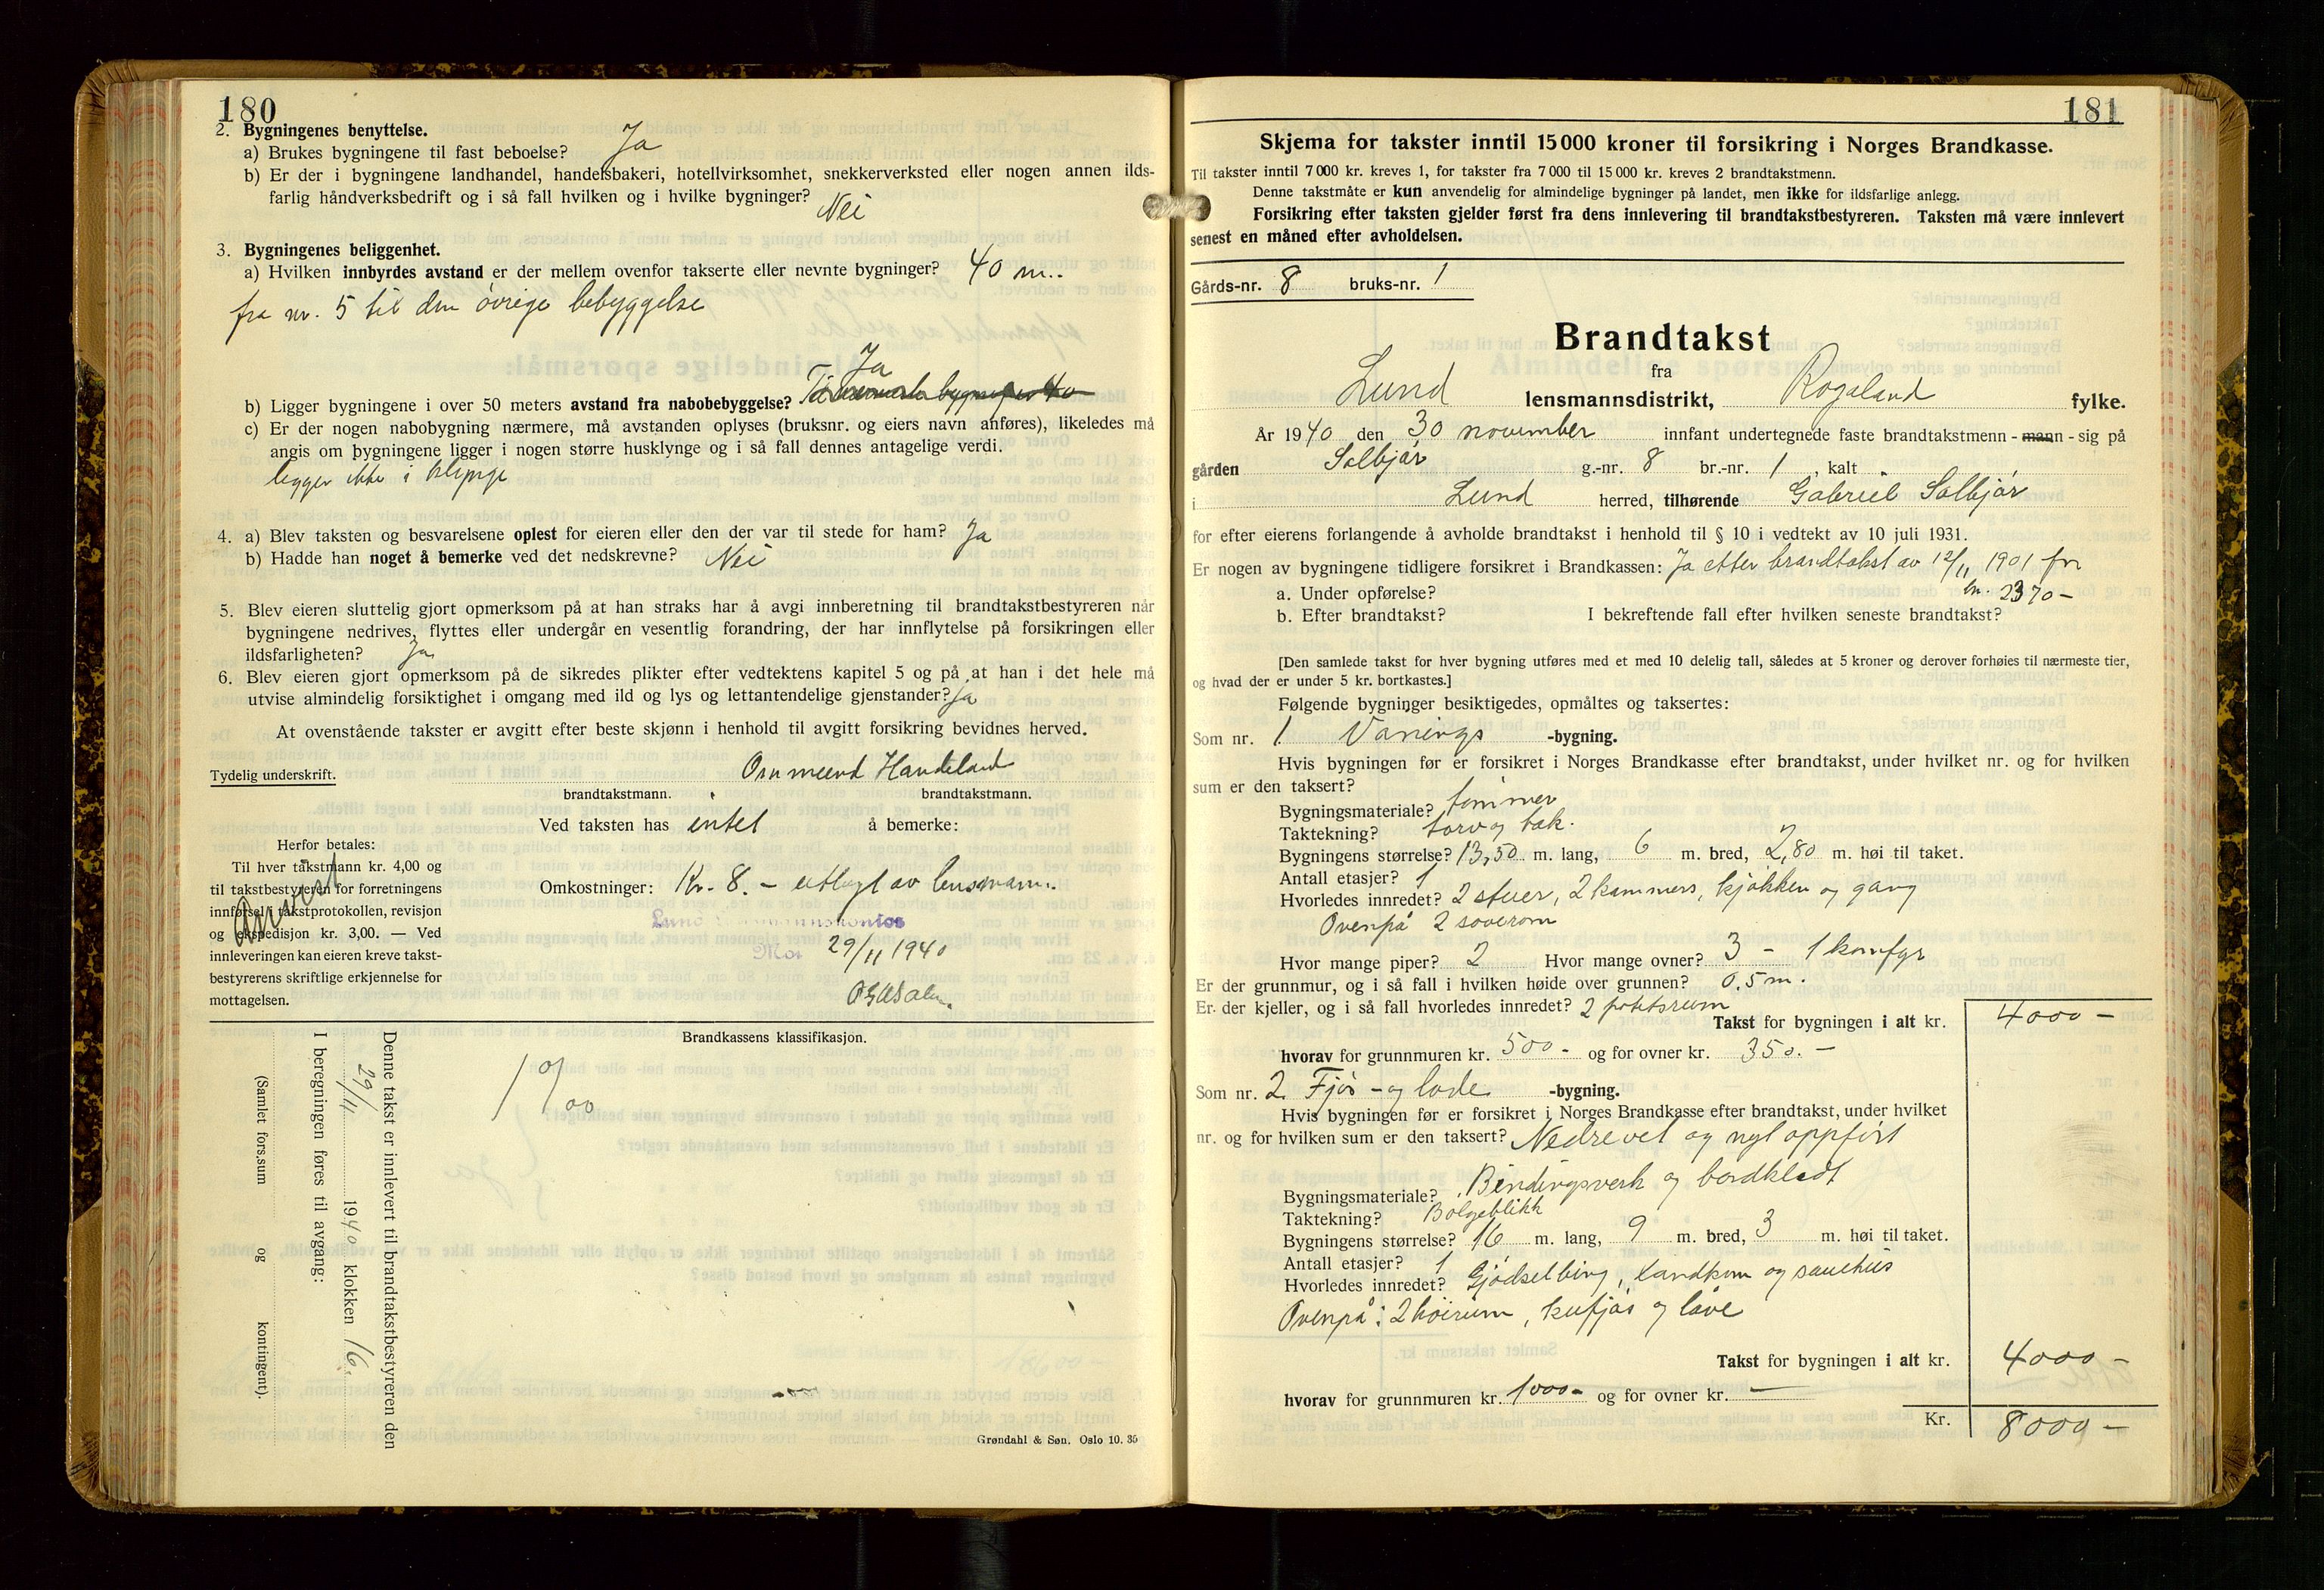 180
2. Bygningenes benyttelse.
a) Brukes bygningene til fast beboelse? Ja
b) Er der i bygningene landhandel, handelsbakeri, hotellvirksomhet, snekkerverksted eller nogen annen ilds-
farlig håndverksbedrift og i så fall hvilken og i hvilke bygninger? Nei
3. Bygningenes beliggenhet.
a) Hvilken innbyrdes avstand er der mellem ovenfor takserte eller nevnte bygninger? 40 m..
fra nr. 5 til den øvrige bebyggelse
Ja
b) Ligger bygningene i over 50 meters avstand fra nabobebyggelse?
c) Er der nogen nabobygning nærmere, må avstanden oplyses (bruksnr. og eiers navn anføres), likeledes må
angis om bygningene ligger i nogen større husklynge og i så fall dennes antagelige verdi.
legger ikke i klynge
4. a) Blev taksten og besvarelsene oplest for eieren eller den der var til stede for ham? Ja
b) Hadde han noget å bemerke ved det nedskrevne? Nei
5. Blev eieren sluttelig gjort opmerksom på at han straks har å avgi innberetning til brandtakstbestyreren når
bygningene nedrives, flyttes eller undergår en vesentlig forandring, der har innflytelse på forsikringen eller
ildsfarligheten? Ja
6. Blev eieren gjort opmerksom på de sikredes plikter efter vedtektens kapitel 5 og på at han i det hele må
utvise almindelig forsiktighet i omgang med ild og lys og lettantendelige gjenstander? Ja
At ovenstående takster er avgitt efter beste skjønn i henhold til avgitt forsikring bevidnes herved.
Tydelig underskrift. Osmund Handeland
brandtakstmann. brandtakstmann.
Ved taksten has intet å bemerke:
Herfor betales:
Til hver takstmann kr. 4,00 og
til takstbestyreren for forretningens
innførsel i takstprotokollen, revisjon
og ekspedisjon kr. 3,00. — Ved
innleveringen kan eieren kreve takst-
bestyrerens skriftlige erkjennelse for
mottagelsen.
Omkostninger: Kr. 8. - utlagt av lensmann.
Lund
Mot 29/11 1940
Brandkassens klassifikasjon.
1 0/00
Denne takst er innlevert til brandtakstbestyreren den
29/11 1940 klokken 16
I beregningen føres til avgang:
(Samlet fors.sum og kontingent).
Grøndahl & Søn. Oslo 10. 35
181
Skjema for takster inntil 15 000 kroner til forsikring i Norges Brandkasse.
Til takster inntil 7 000 kr. kreves 1, for takster fra 7 000 til 15 000 kr. kreves 2 brandtakstmenn.
Denne takstmåte er kun anvendelig for almindelige bygninger på landet, men ikke for ildsfarlige anlegg.
Forsikring efter taksten gjelder først fra dens innlevering til brandtakstbestyreren. Taksten må være innlevert
senest en måned efter avholdelsen.
Gårds-nr. 8 bruks-nr. 1
Brandtakst
fra
Lund lensmannsdistrikt, Rogaland fylke.
År 1940 den 30 november innfant undertegnede faste brandtakstmenn - mann - sig på
gården Solbjør g.-nr. 8 br.-nr. 1, kalt
i Lund herred, tilhørende Gabriel Solbjør
for efter eierens forlangende å avholde brandtakst i henhold til § 10 i vedtekt av 10 juli 1931.
Er nogen av bygningene tidligere forsikret i Brandkassen: Ja etter brandtakst av 12/11 1901 for
a. Under opførelse? kr. 2370 -
b. Efter brandtakst? I bekreftende fall efter hvilken seneste brandtakst?
[Den samlede takst for hver bygning utføres med et med 10 delelig tall, således at 5 kroner og derover forhøies til nærmeste tier,
og hvad der er under 5 kr. bortkastes.]
Følgende bygninger besiktigedes, opmåltes og taksertes:
Som nr. 1 Vånings -bygning.
Hvis bygningen før er forsikret i Norges Brandkasse efter brandtakst, under hvilket nr. og for hvilken
sum er den taksert?
Bygningsmateriale? tømmer
Taktekning? torv og tak.
Bygningens størrelse? 13,50 m. lang, 6 m. bred, 2,80 m. høi til taket.
Antall etasjer? 1
Hvorledes innredet? 2 stuer, 2 kammers, kjøkken og gang
Ovenpå 2 soverom
Hvor mange piper? 2 Hvor mange ovner? 3 - 1 komfyr
Er der grunnmur, og i så fall i hvilken høide over grunnen? 0.5 m.
Er der kjeller, og i så fall hvorledes innredet? 2 potetsrum
Takst for bygningen i alt kr. 4000 -
hvorav for grunnmuren kr. 500 - og for ovner kr. 350. -
Som nr. 2. Fjøs - og løde -bygning.
Hvis bygningen før er forsikret i Norges Brandkasse efter brandtakst, under hvilket
nr. og for hvilken sum er den taksert? Nedrevet og nyt oppført
Bygningsmateriale? Bindingsverk og bordkledt
Taktekning? Bølgeblikk
Bygningens størrelse? 16 m. lang, 9 m. bred, 3 m. høi til taket.
Antall etasjer? 1
Hvorledes innredet? Gjødselbing, landkum og sauehus
Ovenpå: 2 høirum, kufjøs og låve
Takst for bygningen i alt kr. 4000 -
hvorav for grunnmuren kr. 1000 - og for ovner kr. —
Kr. 8000 -